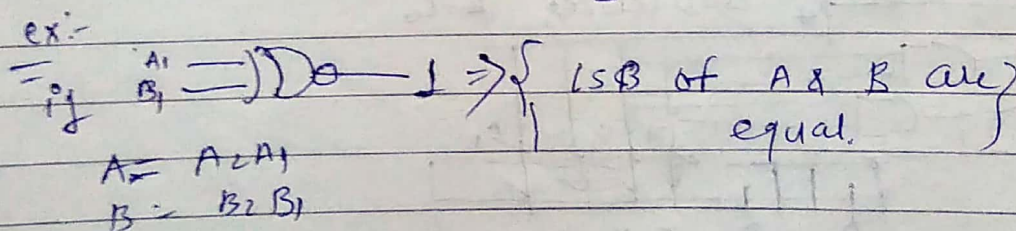 ex:-
if A1 B1 1 ⇒ { LSB of A & B are
equal. }
A = A2A1
B = B2B1